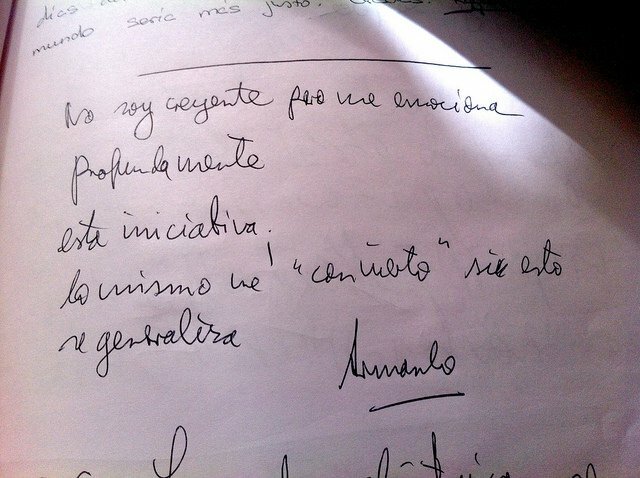 días
mundo sería más justo.
No soy creyente pero me emociona
profundamente
esta iniciativa.
Lo mismo me "convierto" si esto
se generaliza
Armando